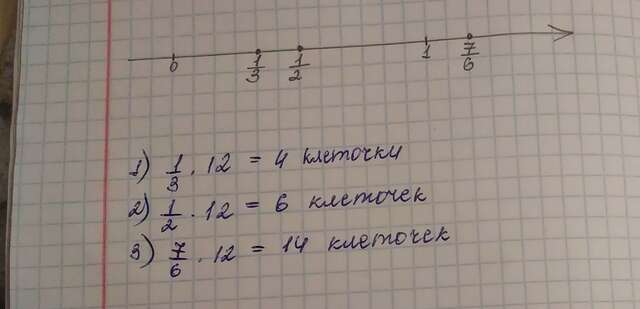 0 1/3 1/2 1 7/6
1) 1/3 · 12 = 4 клеточки
2) 1/2 · 12 = 6 клеточек
3) 7/6 · 12 = 14 клеточек